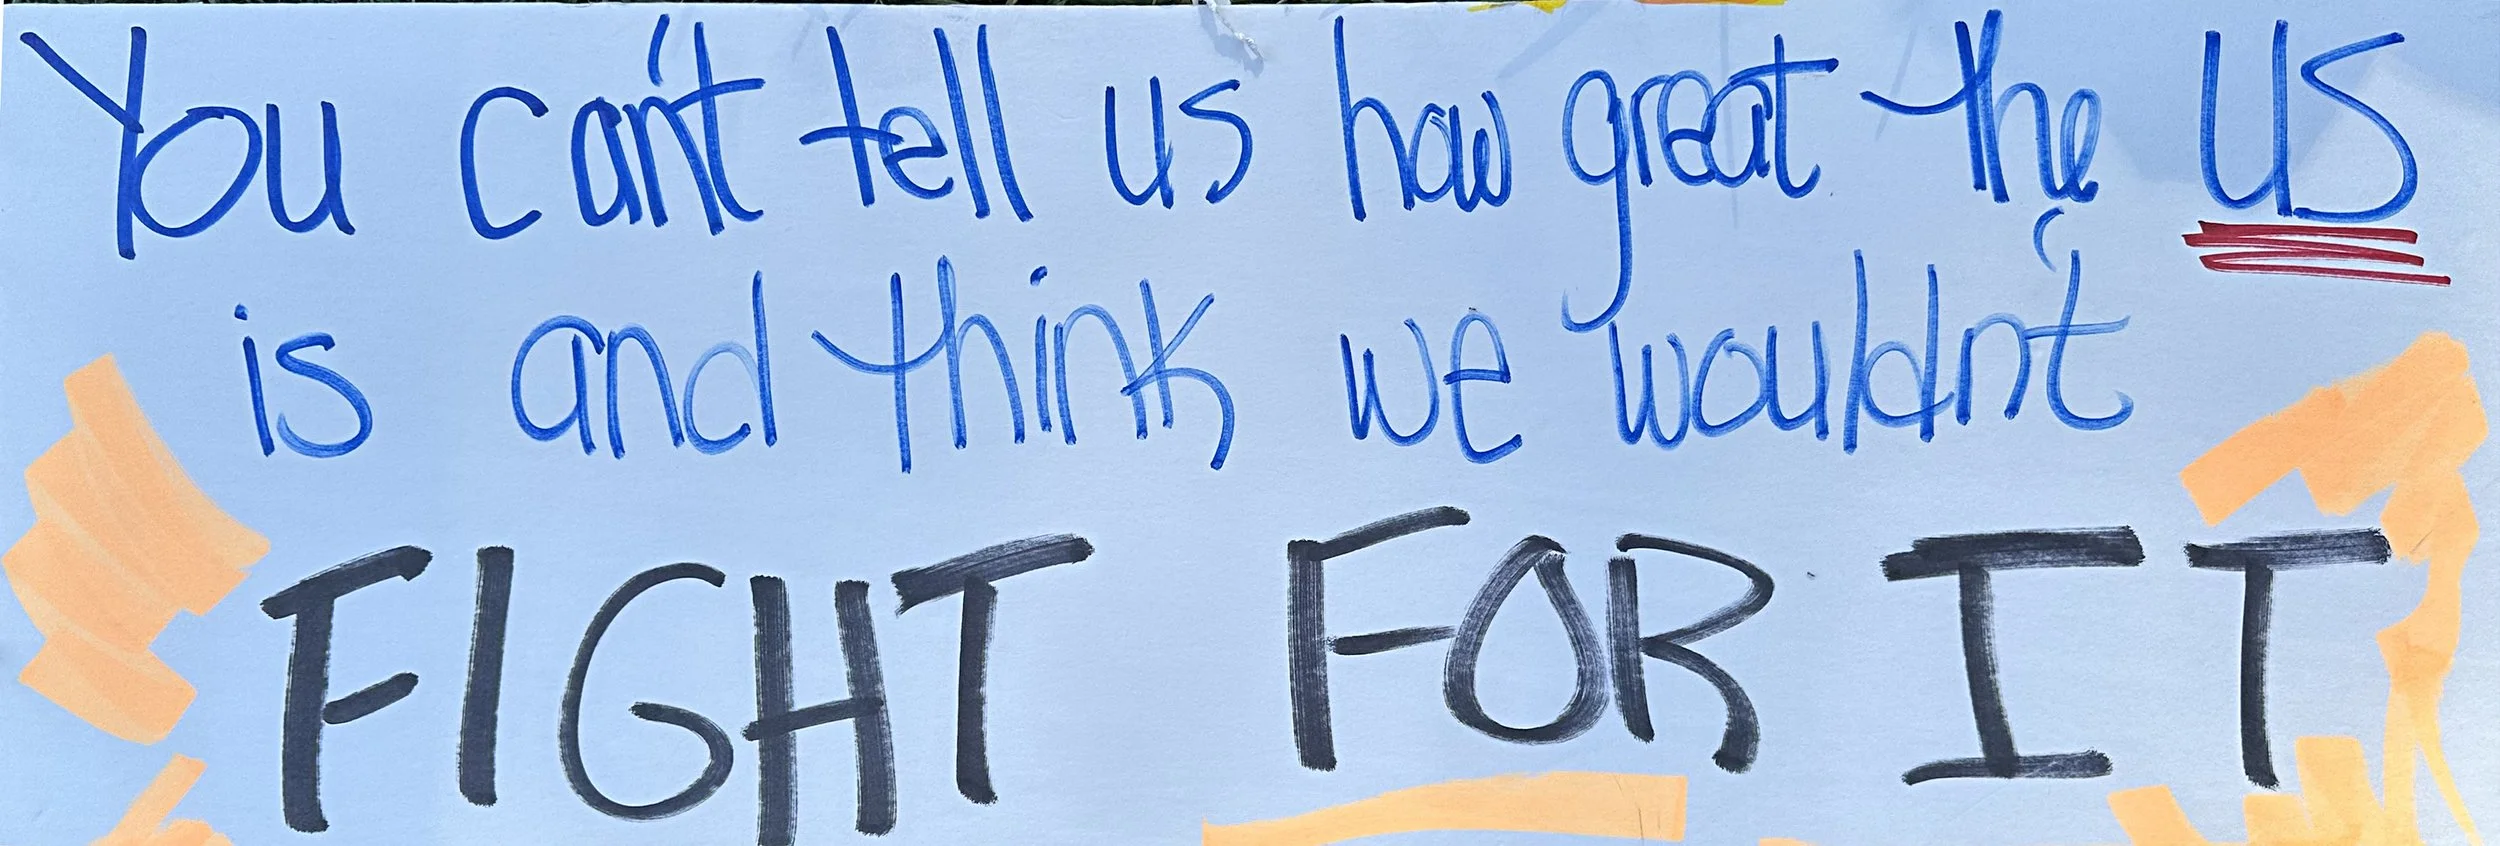 You can't tell us how great the US
is and think we wouldn't
FIGHT FOR IT